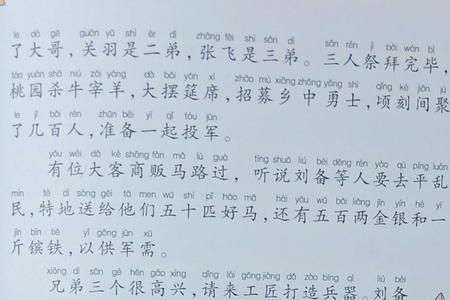 le dà gē guān yǔ shì èr dì zhāng fēi shì sān dì sān rén jì bài wán bì
了大哥，关羽是二弟，张飞是三弟。三人祭拜完毕，
táo yuán shā niú zǎi yáng dà bǎi yán xí zhāo mù xiāng zhōng yǒng shì qǐng kè jiān jù
桃园杀牛宰羊，大摆筵席，招募乡中勇士，顷刻间聚
le jǐ bǎi rén zhǔn bèi yì qǐ tóu jūn
了几百人，准备一起投军。
yǒu wèi dà kè shāng fàn mǎ lù guò tīng shuō liú bèi děng rén yào qù píng luàn
有位大客商贩马路过，听说刘备等人要去平乱
mín tè dì sòng gěi tā men wǔ shí pǐ hǎo mǎ hái yǒu wǔ bǎi liǎng jīn yín hé yì
民，特地送给他们五十匹好马，还有五百两金银和一
jīn bīn tiě yǐ gōng jūn xū
斤镔铁，以供军需。
xiōng dì sān gè hěn gāo xìng qǐng lái gōng jiàng dǎ zào bīng qì liú bèi
兄弟三个很高兴，请来工匠打造兵器。刘备